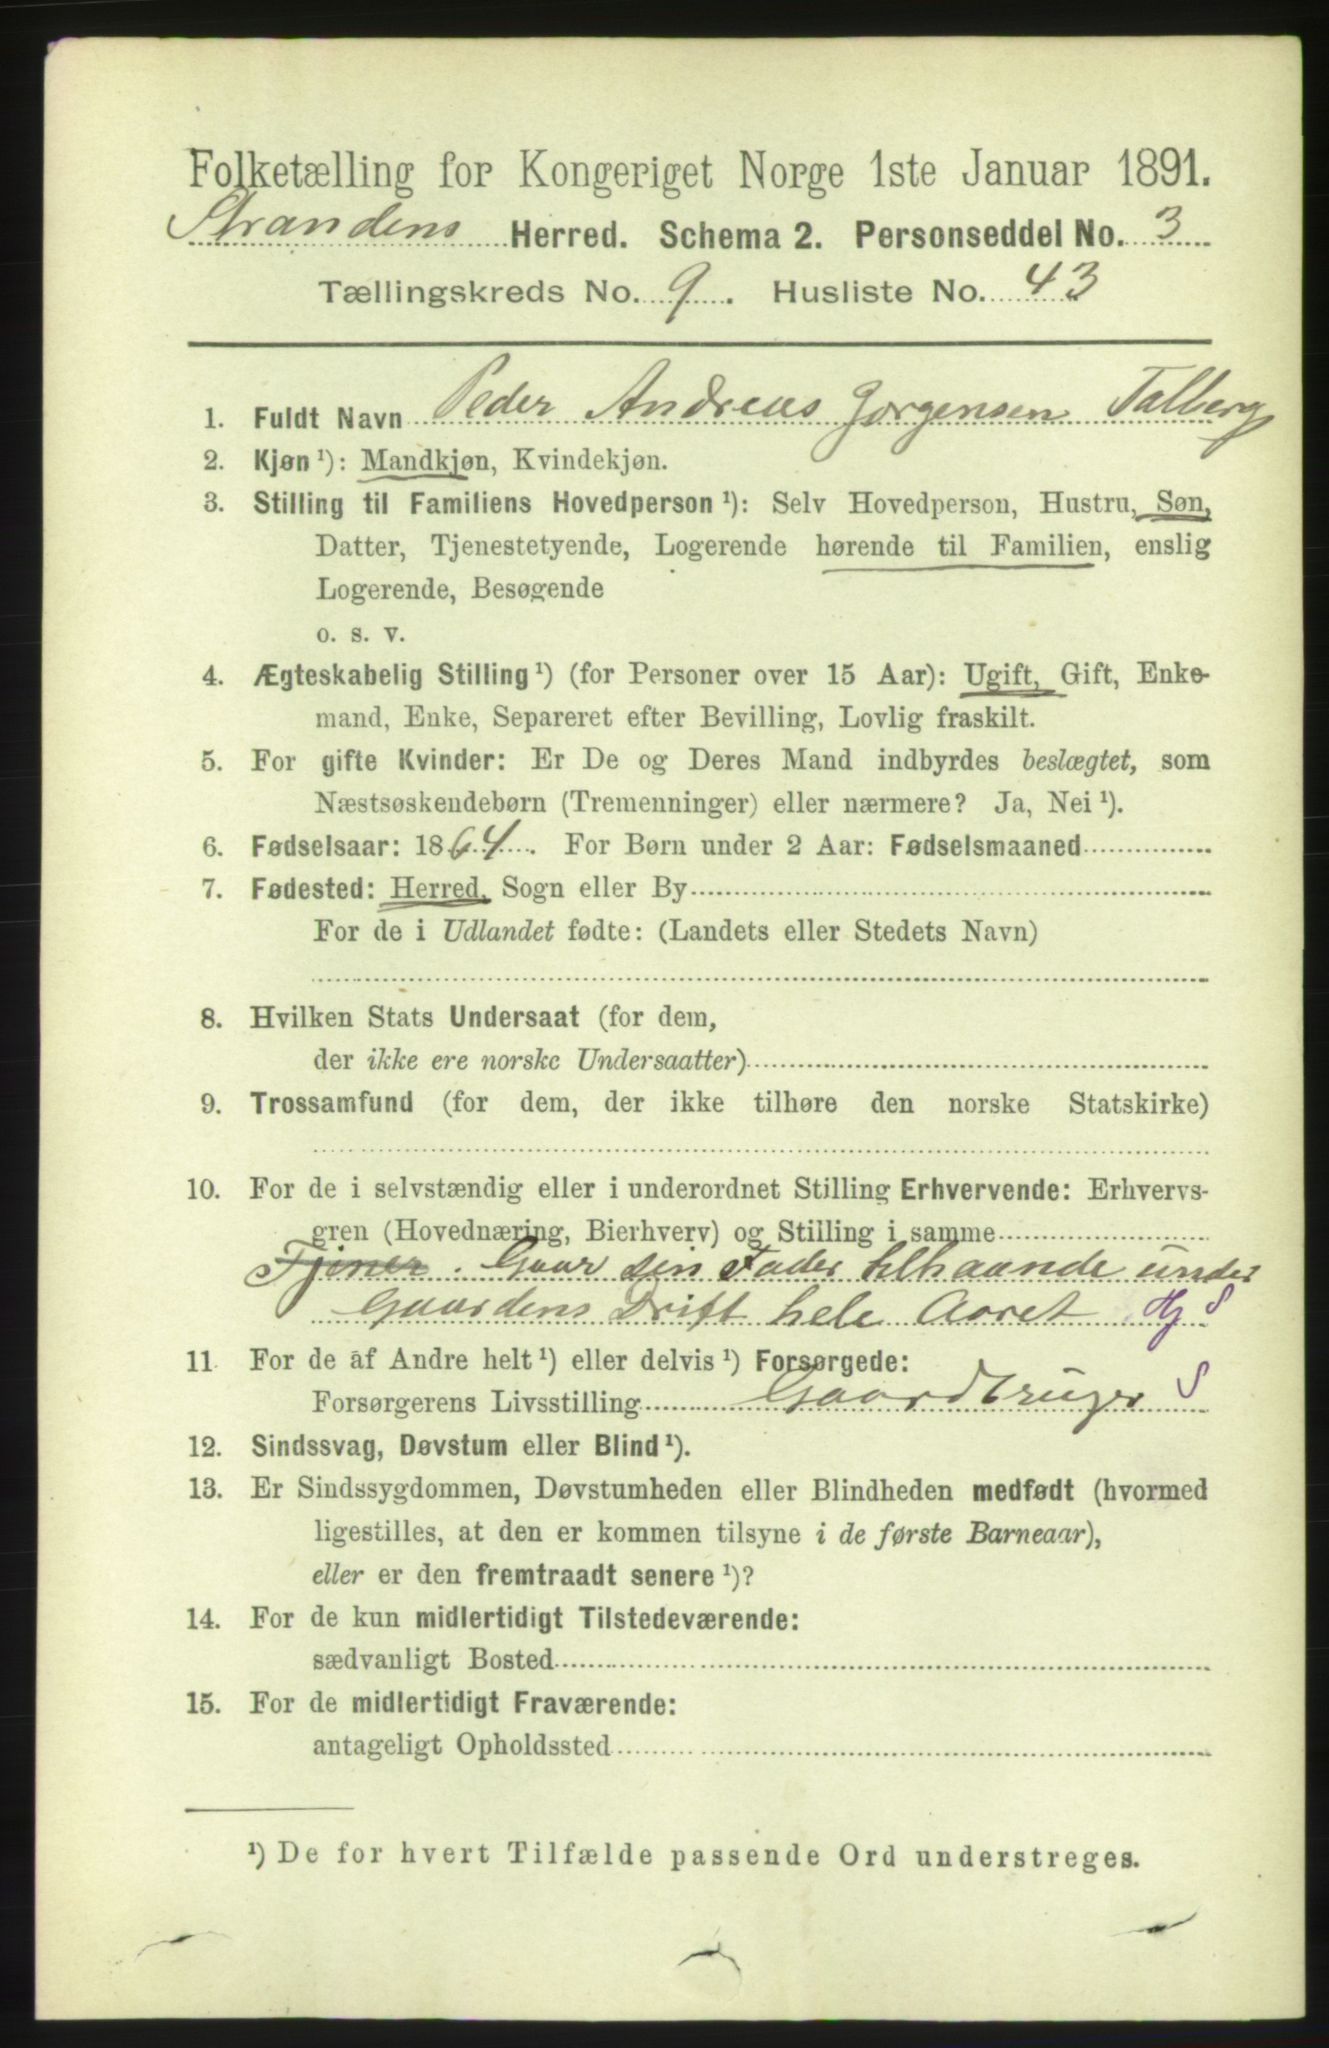 Folketælling for Kongeriget Norge 1ste Januar 1891.
Strandens Herred. Schema 2. Personseddel No. 3
Tællingskreds No. 9. Husliste No. 43
1. Fuldt Navn Peder Andreas Jørgensen Talberg
2. Kjøn ¹): Mandkjøn, Kvindekjøn.
3. Stilling til Familiens Hovedperson ¹): Selv Hovedperson, Hustru, Søn,
Datter, Tjenestetyende, Logerende hørende til Familien, enslig
Logerende, Besøgende
o. s. v.
4. Ægteskabelig Stilling ¹) (for Personer over 15 Aar): Ugift, Gift, Enke-
mand, Enke, Separeret efter Bevilling, Lovlig fraskilt.
5. For gifte Kvinder: Er De og Deres Mand indbyrdes beslægtet, som
Næstsøskendebørn (Tremenninger) eller nærmere? Ja, Nei ¹).
6. Fødselsaar: 1864. For Børn under 2 Aar: Fødselsmaaned
7. Fødested: Herred, Sogn eller By
For de i Udlandet fødte: (Landets eller Stedets Navn)
8. Hvilken Stats Undersaat (for dem,
der ikke ere norske Undersaatter)
9. Trossamfund (for dem, der ikke tilhøre den norske Statskirke)
10. For de i selvstændig eller i underordnet Stilling Erhvervende: Erhvervs-
gren (Hovednæring, Bierhverv) og Stilling i samme
Tjener. Gaar sin Fader tilhaande under
Gaardens Drift hele Aaret Hj S
11 For de af Andre helt ¹) eller delvis ¹) Forsørgede:
Forsørgerens Livsstilling Gaardbruger S
12. Sindssvag, Døvstum eller Blind ¹).
13. Er Sindssygdommen, Døvstumheden eller Blindheden medfødt (hvormed
ligestilles, at den er kommen tilsyne i de første Barneaar),
eller er den fremtraadt senere ¹)?
14. For de kun midlertidigt Tilstedeværende:
sædvanligt Bosted
15. For de midlertidigt Fraværende:
antageligt Opholdssted
¹) De for hvert Tilfælde passende Ord understreges.